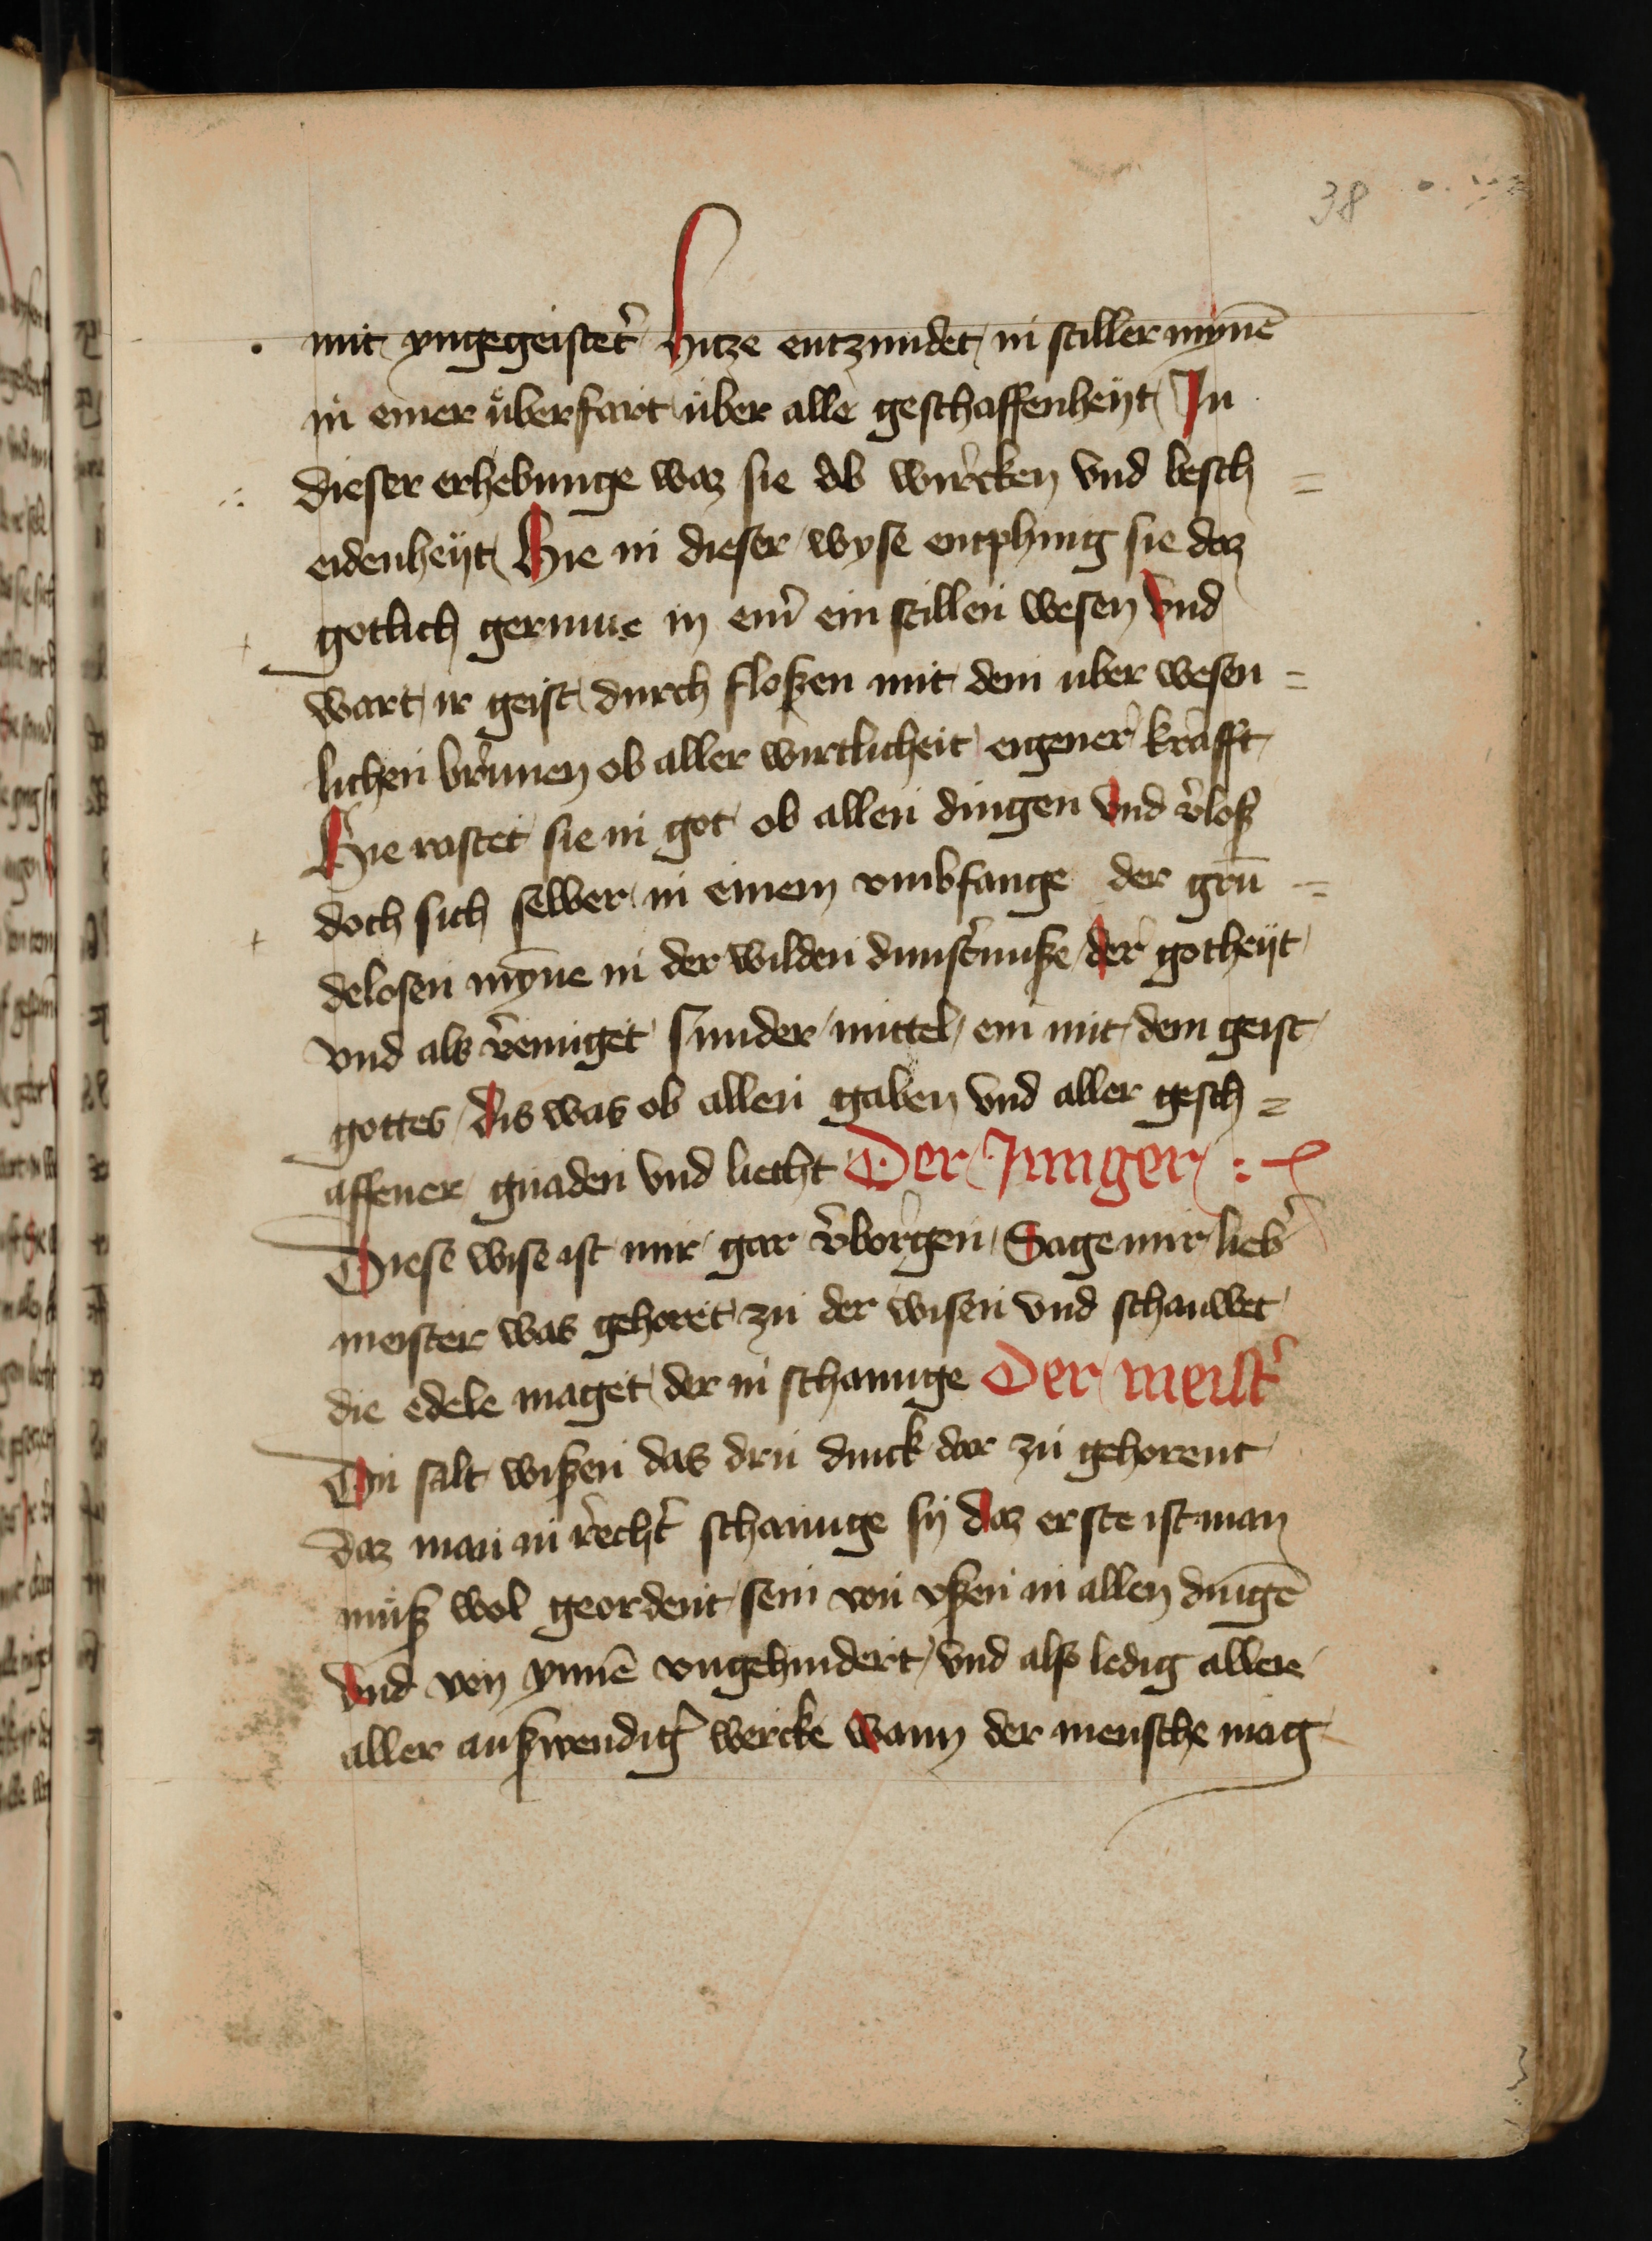 38
mit yngegeistet̉ hitze entzundet in stiller mỹnē
in einer überfart über alle geschaffenheyt In
dieser erhebunge waz sie ob wircken vnd besch =
eidenheyt Hie in dieser wyse entphing sie daz
gotlich gerunne in eim̉ ein stillen wesen vnd
wart ir geist durch floßen mit dem uber wesen =
lichen brunnen ob aller wirtlicheit eigener krafft
Hie rastet sie in got ob allen dingen vnd v̉loß
doch sich selber in einem vmbfange der grū =
delosen mỹne in der wilden dunst̉nuße der gotheyt
vnd als v̉einiget sunder mittel ein mit dem geist
gottes dis was ob allen gaben vnd aller gesch =
affener gnaden vnd liecht Der Junger :
Diese wise ist mir gar v̉borgen Sage mir lieb̉
meister was gehoret zu der wisen vnd schauwet
die edele maget der in schauuge Der meist̉
Du salt wißen das dru dinck dar zu gehorent
daz man in recht̉ schauuge sy daz erste ist man
muß wol geordent sein von vßen in allen dingē
vnd von ynnē vngehindert vnd also ledig allere
aller außwendig̉ wercke wann der mensche mag